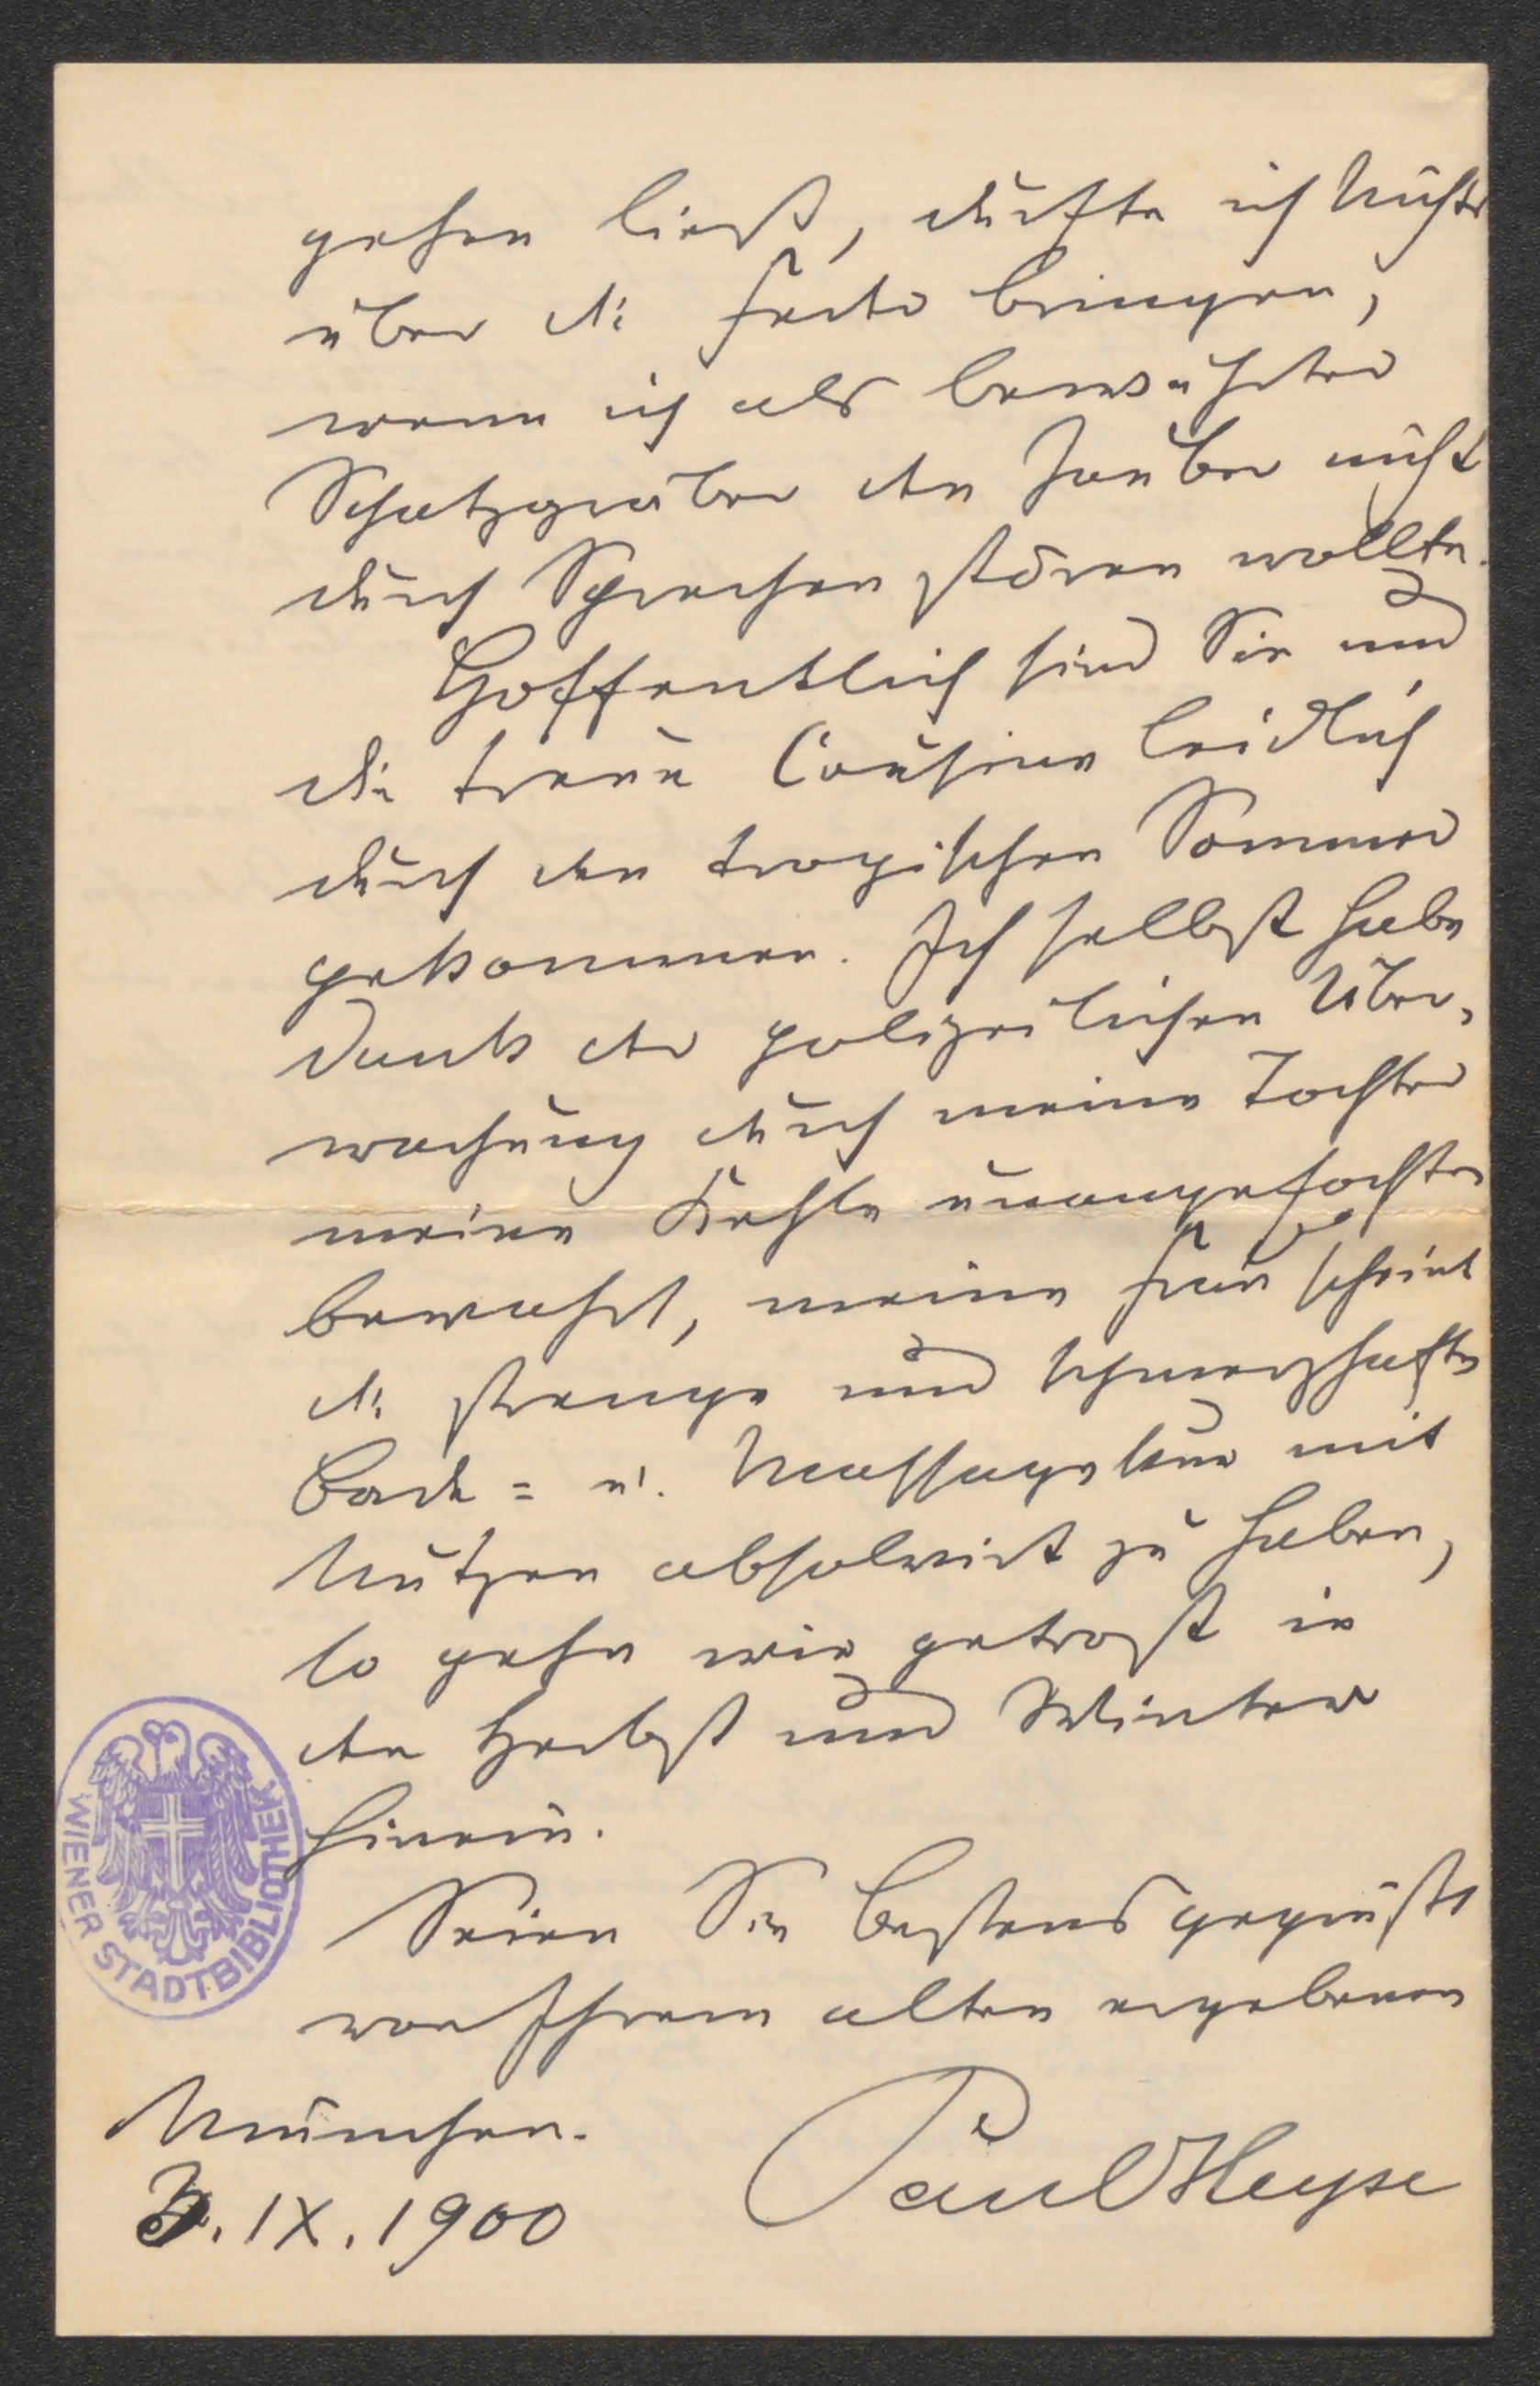 gehen ließ, durfte ich Nichts
über die Feder bringen,
wenn ich als bewährter
Schatzgräber den Zauber nicht
durch Sprechen stören wollte.
Hoffentlich sind Sie und
die treue Cousine leidlich
durch den tropischen Sommer
gekommen. Ich selbst habe
Dank der polizeilichen Über,
wachung durch meine Tochter
meine Kehle unangefochten
bewahrt, meine Frau scheint
die strenge und schmerzhafte
Bade = u. Massagekur mit
Nutzen absolvirt zu haben,
so gehn wir getrost in
den Herbst und Winter
hinein.
Seien Sie bestens gegrüßt
von Ihrem alten ergebenen
München.
Paul Heyse
3. IX. 1900
WIENER STADTBIBLIOTHEK